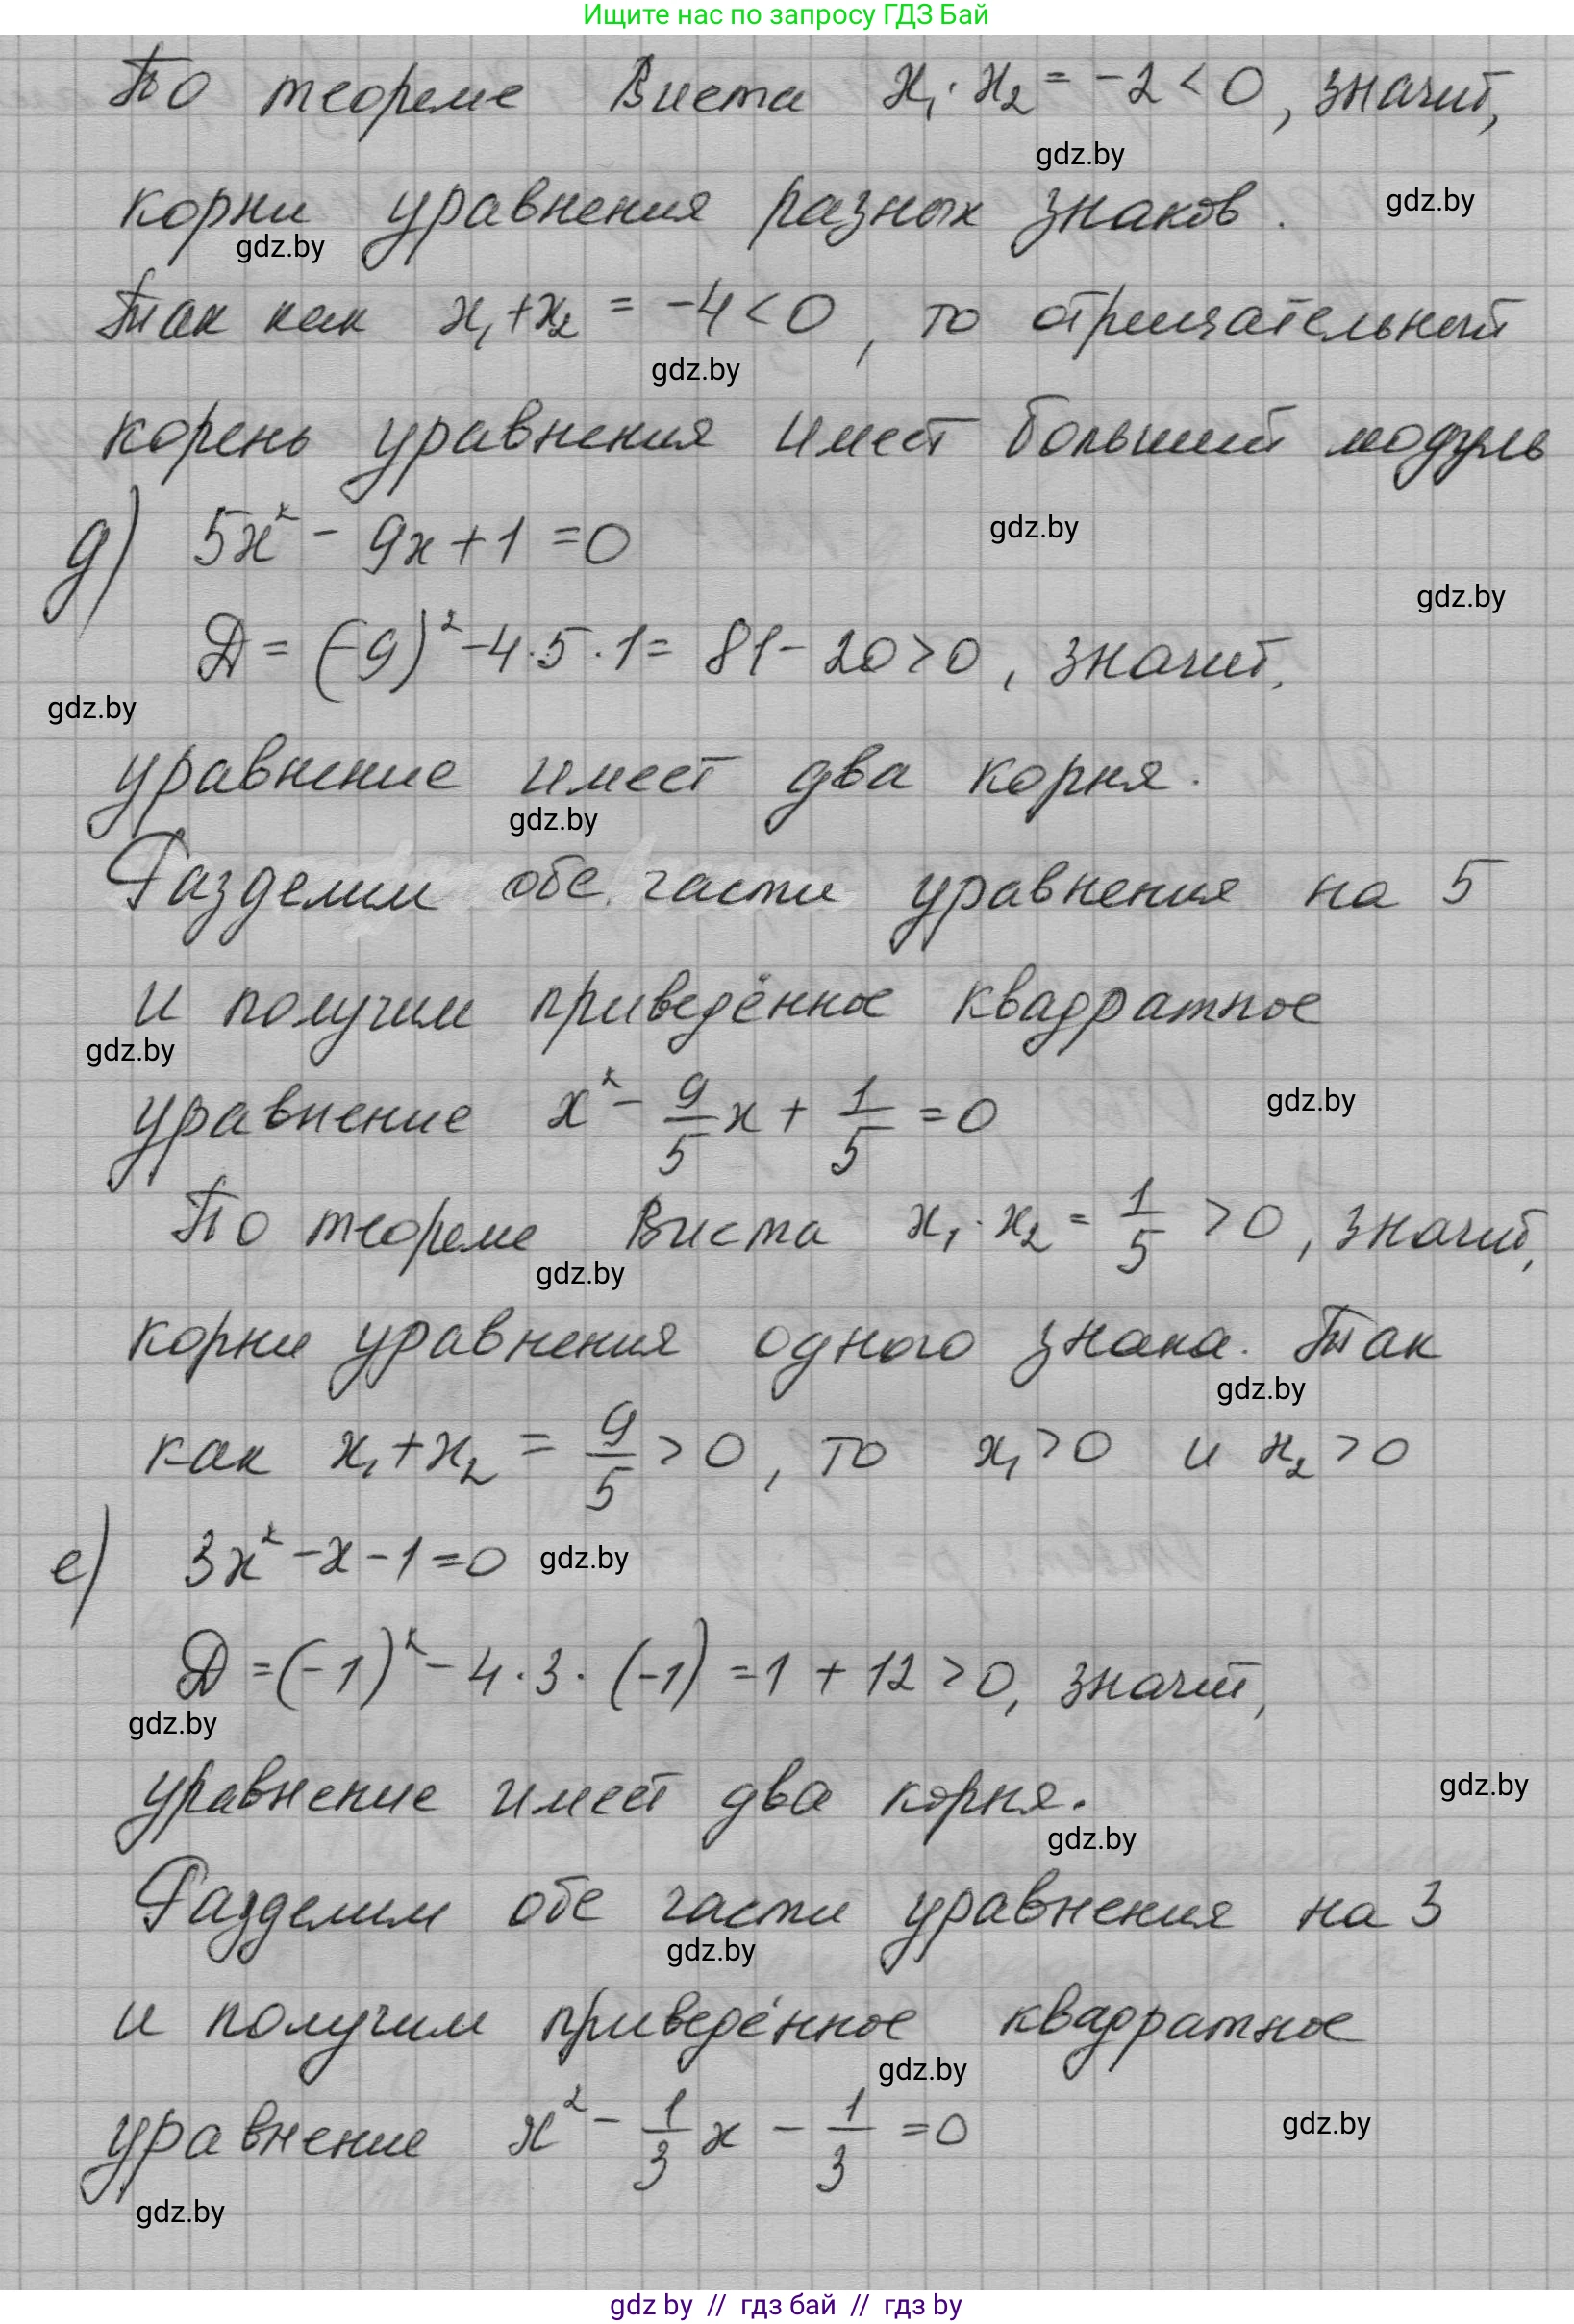 Ищите нас по запросу ГДЗ Бай
По теореме Виета x₁·x₂ = -2 < 0, значит,
gdz.by
корни уравнения разных знаков.
gdz.by
gdz.by
Так как x₁+x₂ = -4 < 0, то отрицательный
gdz.by
корень уравнения имеет больший модуль
д) 5x² - 9x + 1 = 0
gdz.by
gdz.by
D = (-9)² - 4·5·1 = 81 - 20 > 0, значит,
gdz.by
уравнение имеет два корня.
gdz.by
Разделим обе части уравнения на 5
и получим приведённое квадратное
gdz.by
уравнение x² - 9/5 x + 1/5 = 0
gdz.by
По теореме Виета x₁·x₂ = 1/5 > 0, значит,
gdz.by
корни уравнения одного знака. Так
gdz.by
как x₁+x₂ = 9/5 > 0, то x₁ > 0 и x₂ > 0
е) 3x² - x - 1 = 0
gdz.by
D = (-1)² - 4·3·(-1) = 1 + 12 > 0, значит,
gdz.by
уравнение имеет два корня.
gdz.by
gdz.by
Разделим обе части уравнения на 3
gdz.by
и получим приведённое квадратное
gdz.by
уравнение x² - 1/3 x - 1/3 = 0
gdz.by
gdz.by
gdz by // гдз бай // гдз by